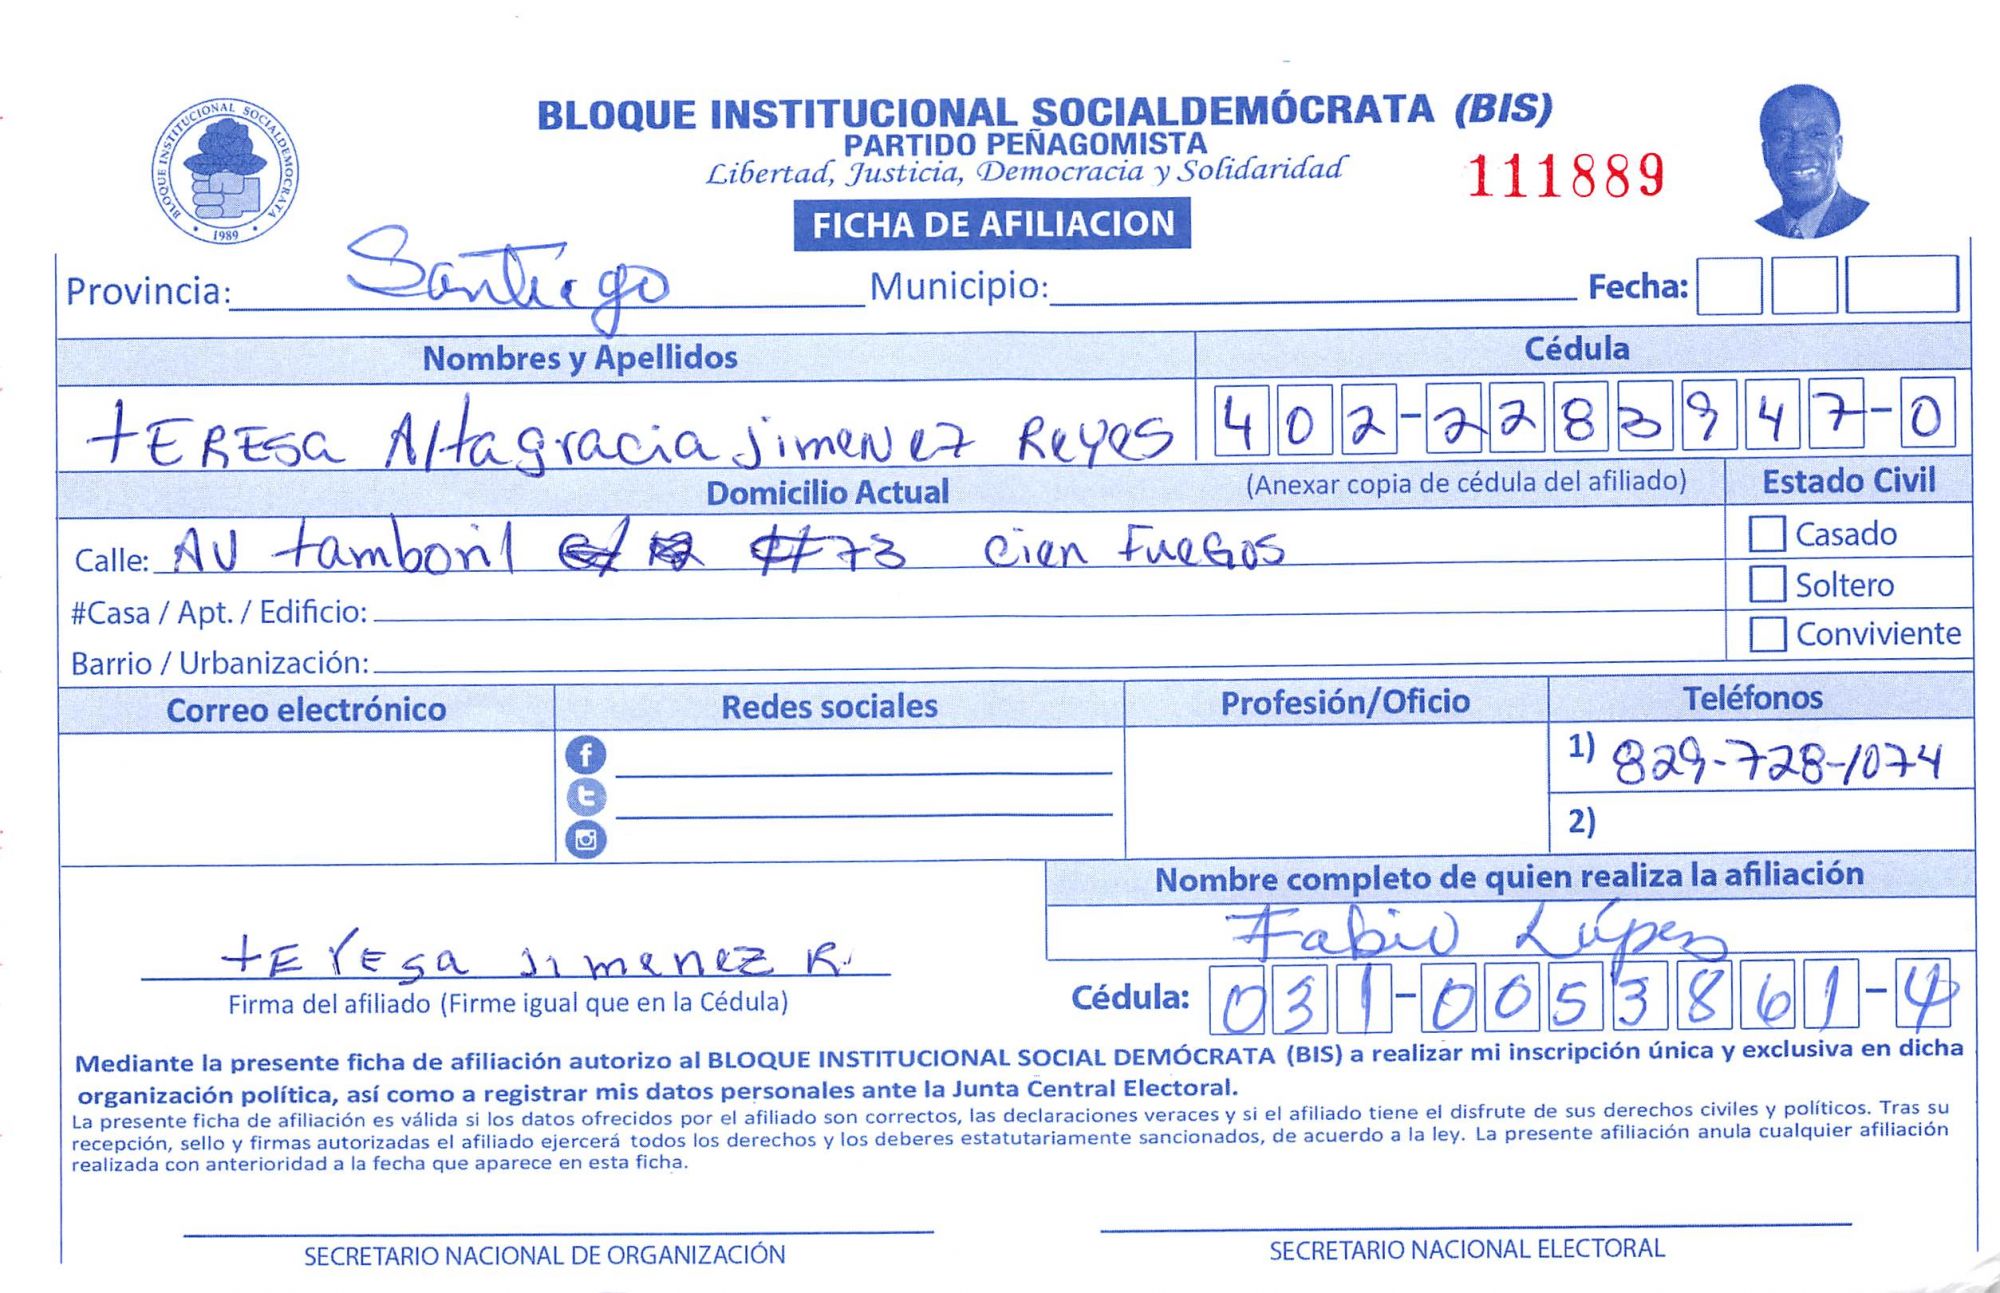 BLOQUE INSTITUCIONAL SOCIALDEMOCRATA
1989
BLOQUE INSTITUCIONAL SOCIALDEMÓCRATA (BIS)
PARTIDO PEÑAGOMISTA
Libertad, Justicia, Democracia y Solidaridad
111889
FICHA DE AFILIACION
Provincia: Santiago Municipio: Fecha:
Nombres y Apellidos Cédula
tERESa Altagracia jimenez Reyes 402-2283947-0
Domicilio Actual (Anexar copia de cédula del afiliado) Estado Civil
Calle: AU tamboril #73 cien FueGos Casado
#Casa / Apt. / Edificio: Soltero
Barrio / Urbanización: Conviviente
Correo electrónico Redes sociales Profesión/Oficio Teléfonos
1) 829-728-1074
2)
Nombre completo de quien realiza la afiliación
Fabio Lúpez
tEresa jimenez R.
Firma del afiliado (Firme igual que en la Cédula) Cédula: 031-0053861-4
Mediante la presente ficha de afiliación autorizo al BLOQUE INSTITUCIONAL SOCIAL DEMÓCRATA (BIS) a realizar mi inscripción única y exclusiva en dicha
organización política, así como a registrar mis datos personales ante la Junta Central Electoral.
La presente ficha de afiliación es válida si los datos ofrecidos por el afiliado son correctos, las declaraciones veraces y si el afiliado tiene el disfrute de sus derechos civiles y políticos. Tras su
recepción, sello y firmas autorizadas el afiliado ejercerá todos los derechos y los deberes estatutariamente sancionados, de acuerdo a la ley. La presente afiliación anula cualquier afiliación
realizada con anterioridad a la fecha que aparece en esta ficha.
SECRETARIO NACIONAL DE ORGANIZACIÓN SECRETARIO NACIONAL ELECTORAL